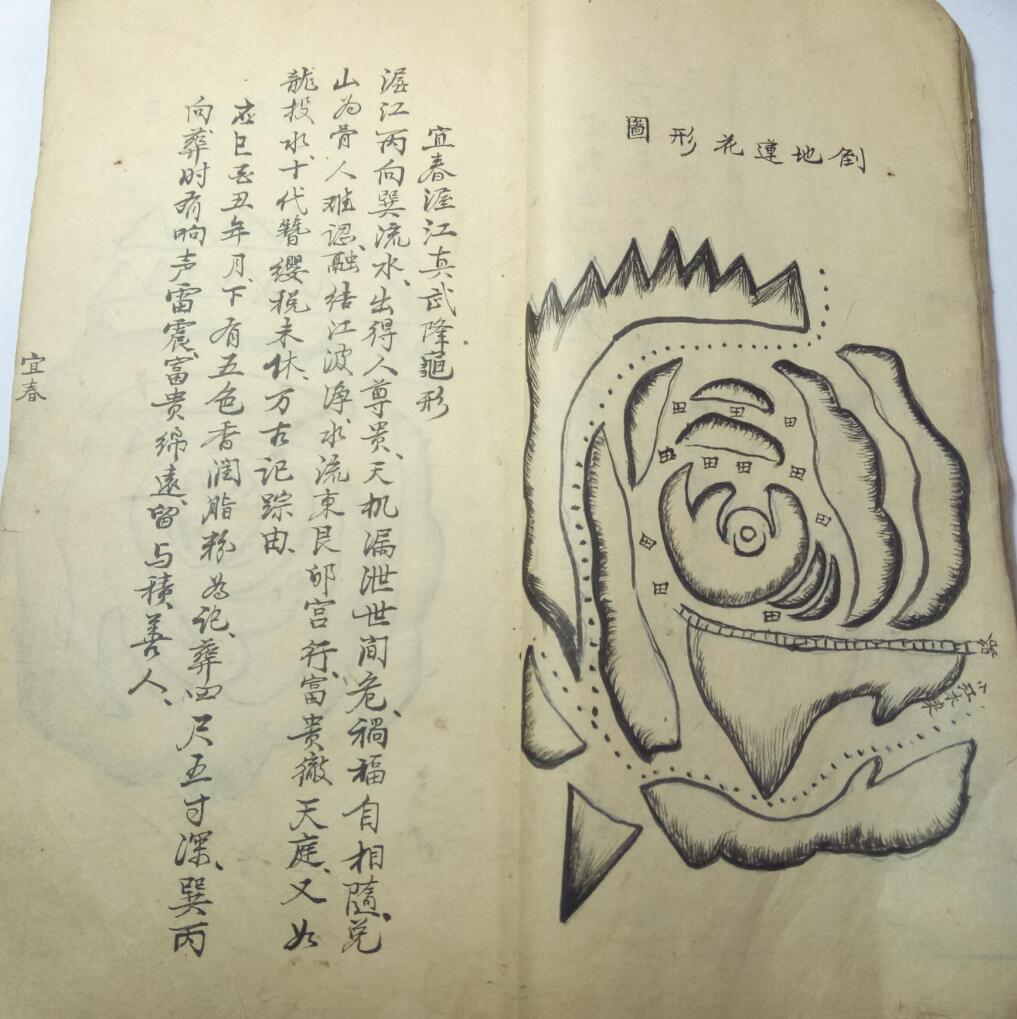 倒地蓮花形圖
田
田
田
田
田
田
田
田
田
田
田
路
小江水來
宜春渥江真武降龜形
渥江丙向巽流水、出得人尊贵、天机漏泄世间危、禍福自相隨、兑
山为骨人难認、融结江波净、水流東艮卯宫行、富贵徹天庭、又如
龍投水、十代簪缨税未休、万古记踪由、
巳酉丑年月、下有五色香润脂粉为记、葬四尺五寸深、巽丙
向葬时有响声雷震、富贵綿遠、留与積善人、
宜春